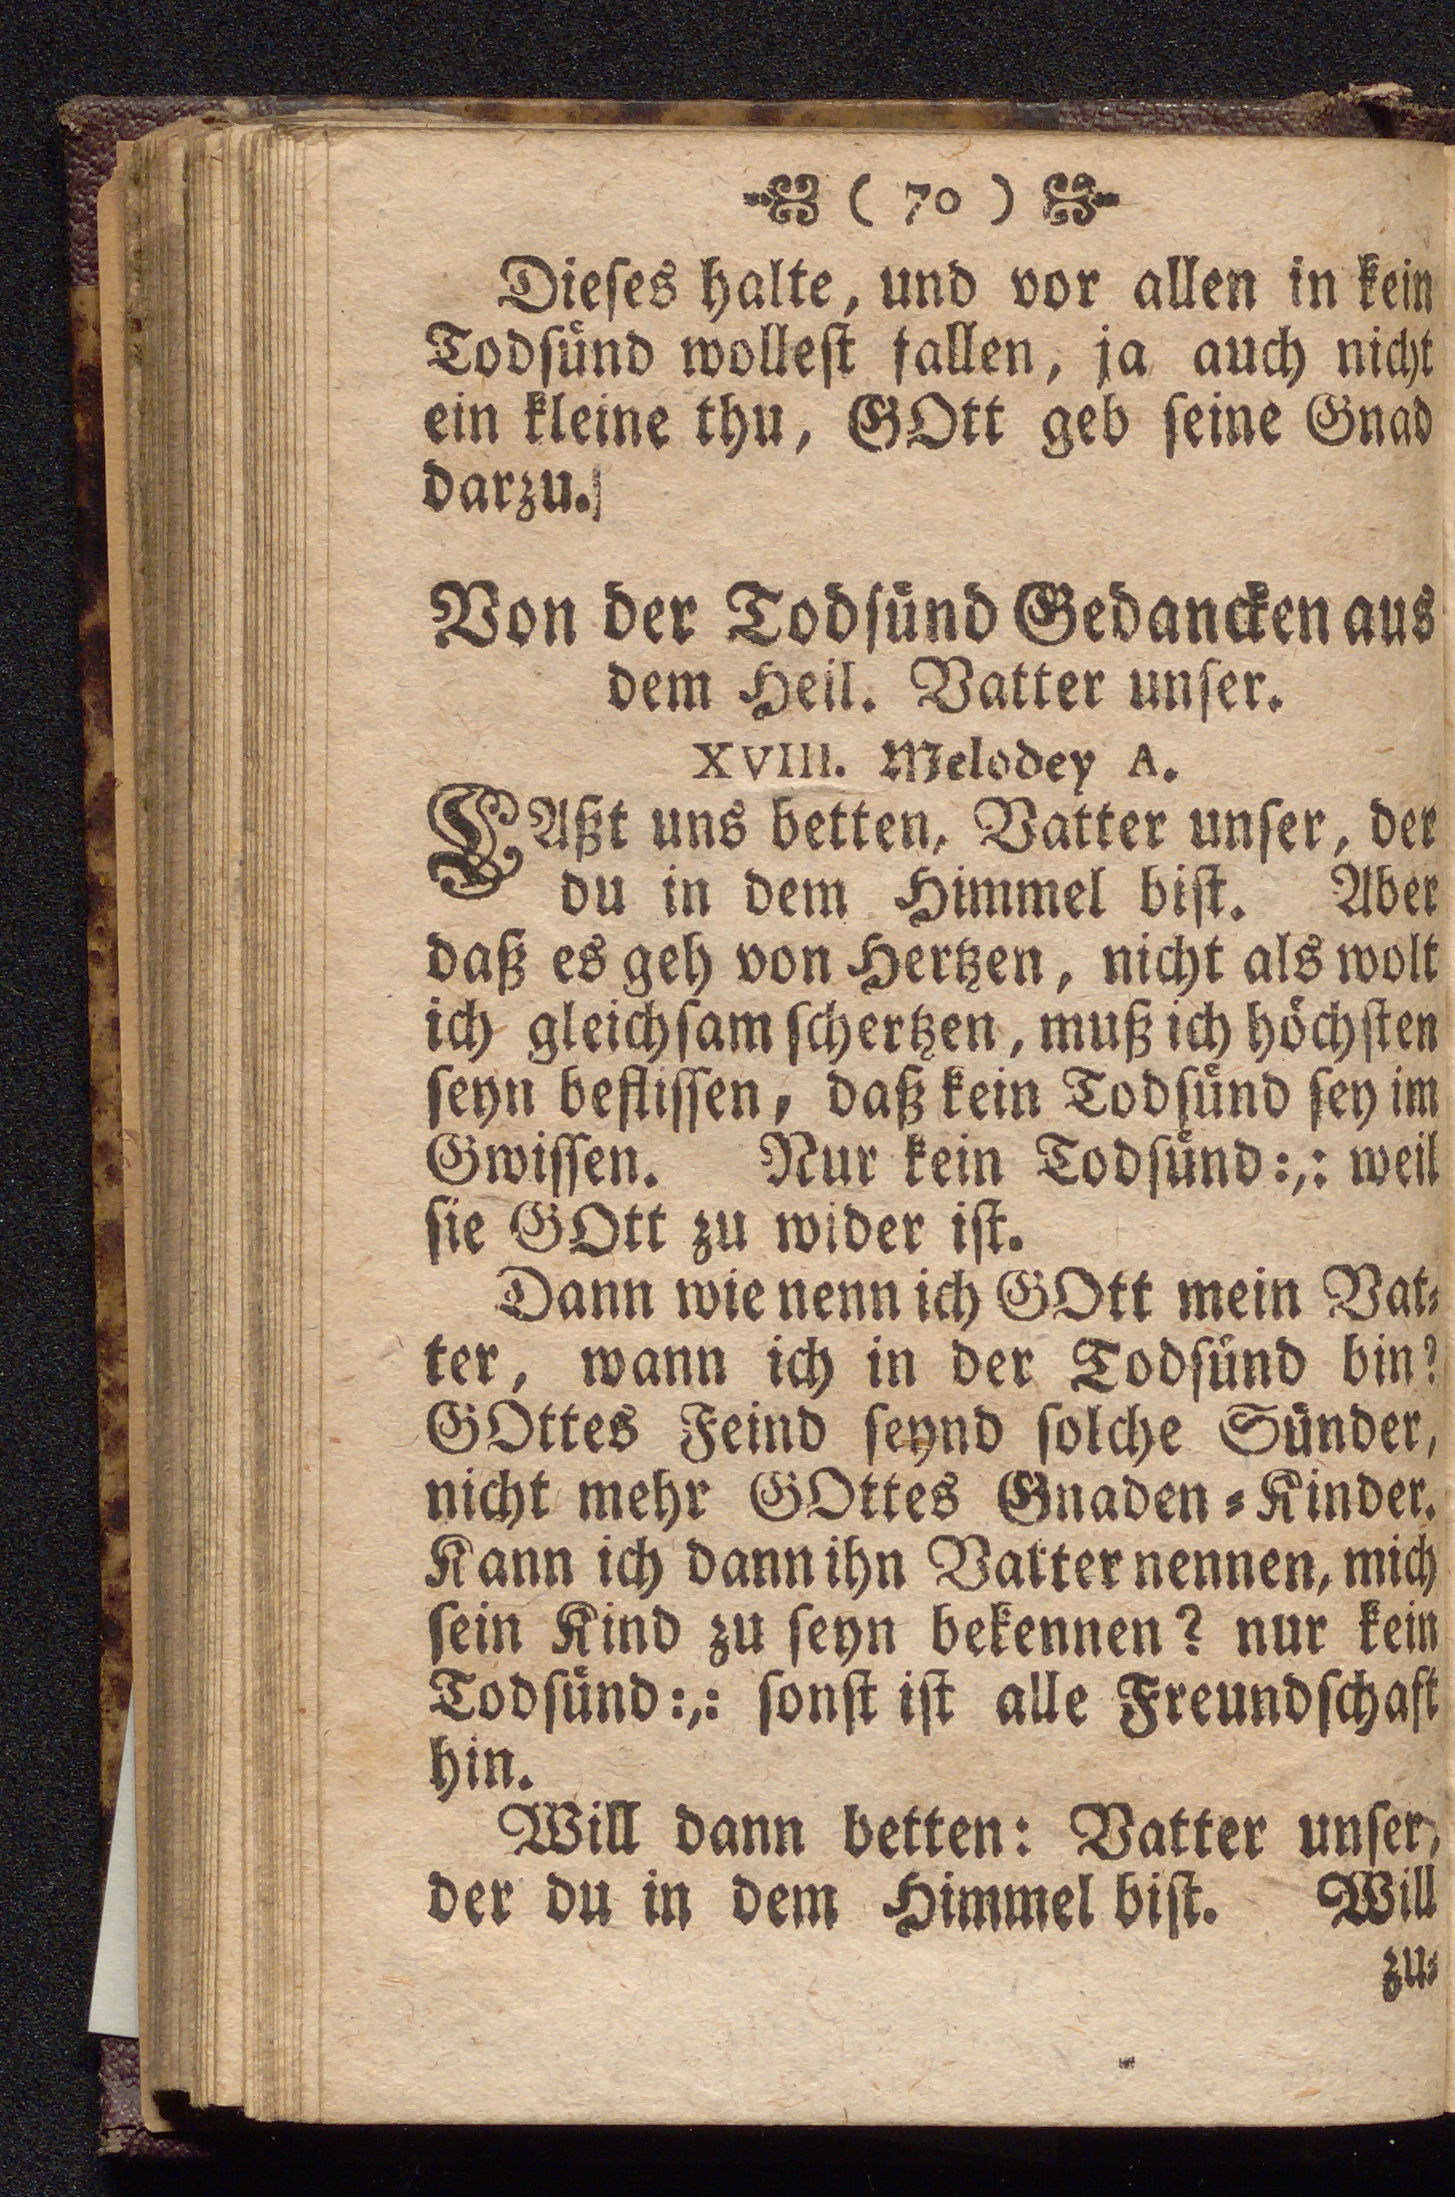 ( 70 )
Dieſes halte, und vor allen in kein
Todſuͤnd wolleſt fallen, ja auch nicht
ein kleine thu, GOtt geb ſeine Gnad
darzu.
Von der Todſuͤnd Gedancken aus
dem Heil. Vatter unſer.
XVIII. Melodey A.
LAßt uns betten, Vatter unſer, der
du in dem Himmel biſt. Aber
daß es geh von Hertzen, nicht als wolt
ich gleichſam ſchertzen, muß ich hoͤchſten
ſeyn befliſſen, daß kein Todſuͤnd ſey im
Gwiſſen. Nur kein Todſuͤnd:,: weil
ſie GOtt zu wider iſt.
Dann wie nenn ich GOtt mein Vat⸗
ter, wann ich in der Todſuͤnd bin?
GOttes Feind ſeynd ſolche Suͤnder,
nicht mehr GOttes Gnaden⸗Kinder.
Kann ich dann ihn Vatter nennen, mich
ſein Kind zu ſeyn bekennen? nur kein
Todſuͤnd:,: ſonſt iſt alle Freundſchaft
hin.
Will dann betten: Vatter unſer,
der du in dem Himmel biſt. Will
zu⸗